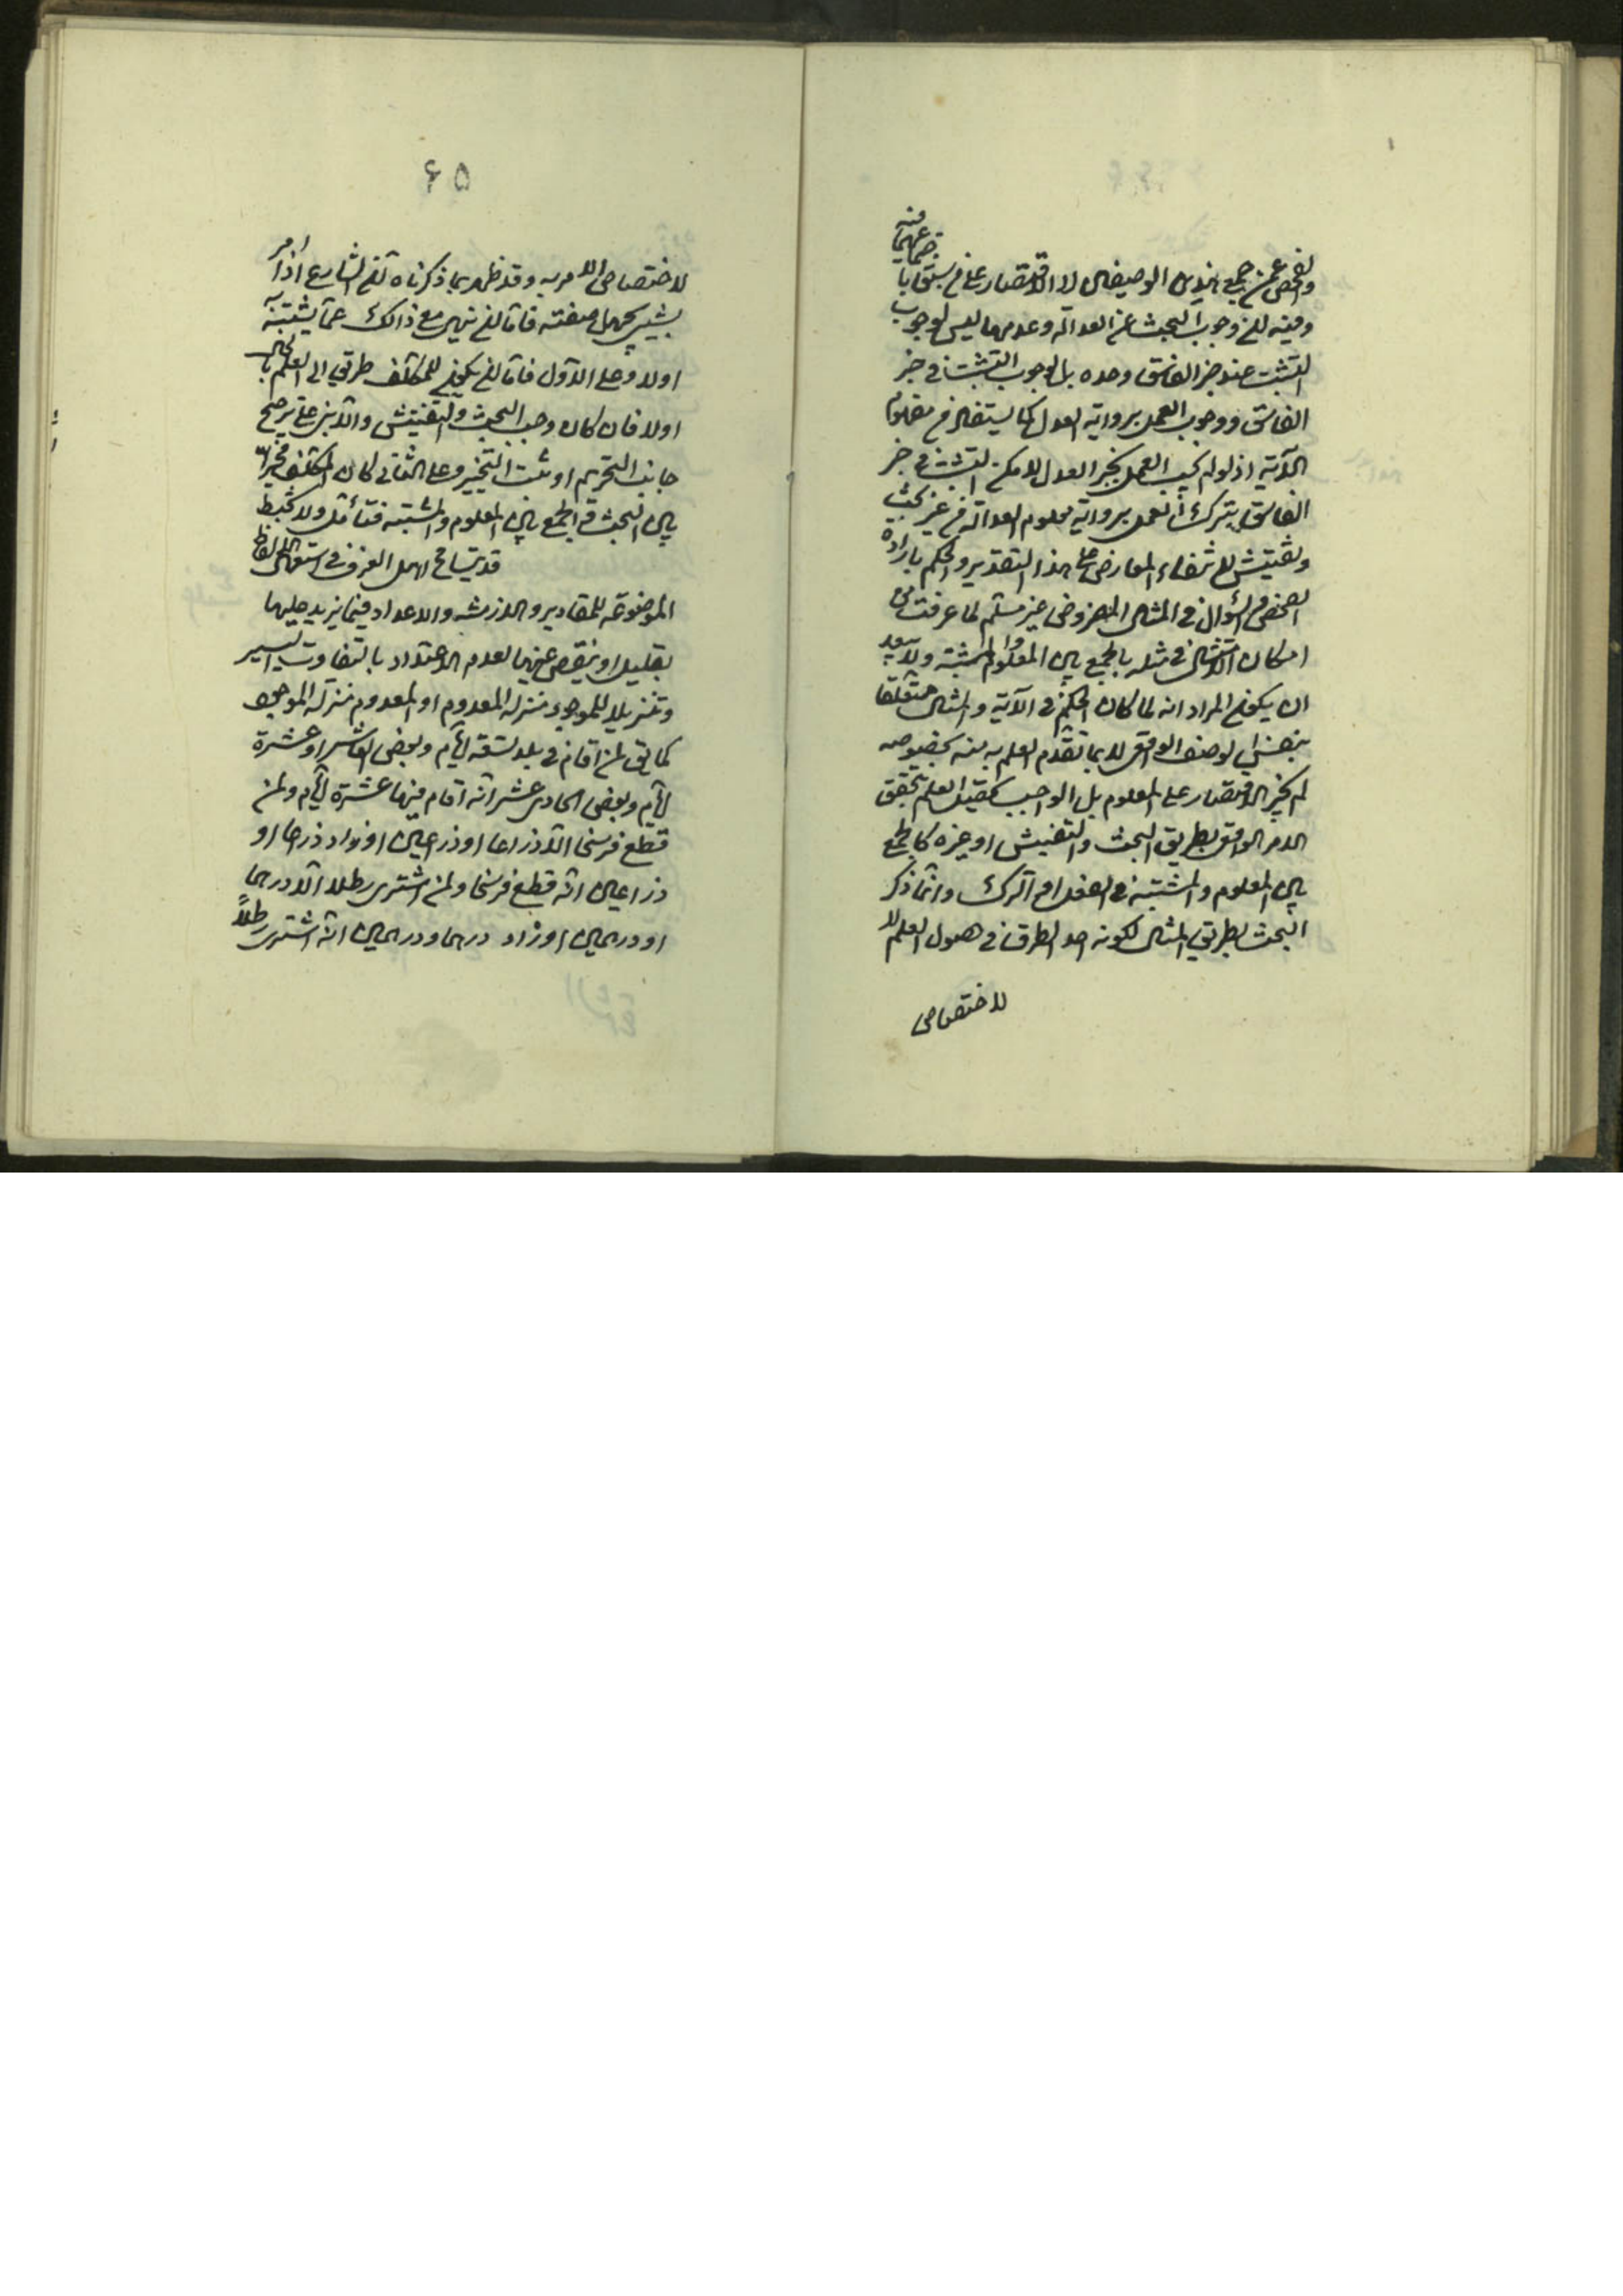 والفحص عن جميع هذين الوصفين لا الاقتصار على من سبق
وفيه ان وجوب البحث عن العدالة وعدمها ليس لوجوب
التثبت عند خبر الفاسق وحده بل لوجوب التثبت في خبر
الفاسق ووجوب العمل برواية العدل كما يستفاد من مفهوم
الآية اذ لو لم يجب العمل بخبر العدل لامكن التثبت في خبر
الفاسق بترك العمل برواية معلوم العدالة من غير بحث
وتفتيش لانتفاء المعارض على هذا التقدير والحكم بارادة
الفحص والسؤال في المثال المفروض غير مسلم لما عرفت من
امكان الامتثال في مثله بالجمع بين المعلوم والمشتبه ولا يبعد
ان يكون المراد انه لما كان الحكم في الآية والمثال متعلقا
بنفس الوصف الواقعي لا بما تقدم العلم به منه بخصوصه
لم يجز الاقتصار على المعلوم بل الواجب تحصيل العلم بتحقق
الامر الواقع بطريق البحث والتفتيش او غيره كالجمع
بين المعلوم والمشتبه في الفعل او الترك وانما ذكر
البحث بطريق المثال لكونه احد الطرق في حصول العلم لا
لاختصاص
۶۵
لاختصاص الامر به وقد ظهر بما ذكرناه ان الشارع اذا امر
بشيء مجهول صفته فاما ان ينهى مع ذالك عما يشتبه
اولا وعلى الاول فاما ان يكون للمكلف طريق الى العلم بالحال
اولا فان كان وجب البحث والتفتيش والا بنى على ترجيح
جانب التحريم او ثبت التخيير وعلى الثاني كان المكلف مخيرا
بين البحث والجمع بين المعلوم والمشتبه فتأمل ولا تخبط
قد يتسامح اهل العرف في استعمال الالفاظ
الموضوعة للمقادير والازمنة والاعداد فيما يزيد عليها
بقليل او ينقص عنها لعدم الاعتداد بالتفاوت اليسير
وتنزيلا للموجود منزلة المعدوم او المعدوم منزلة الموجود
كما يق لمن اقام في بلد تسعة ايام وبعض العاشر او عشرة
ايام وبعض الحادى عشر انه اقام فيها عشرة ايام ولمن
قطع فرسخا الا ذراعا او ذراعين او زاد ذراعا او
ذراعين انه قطع فرسخا ولمن اشترى رطلا الا درهما
او درهمين او زاد درهما ودرهمين انه اشترى رطلاً